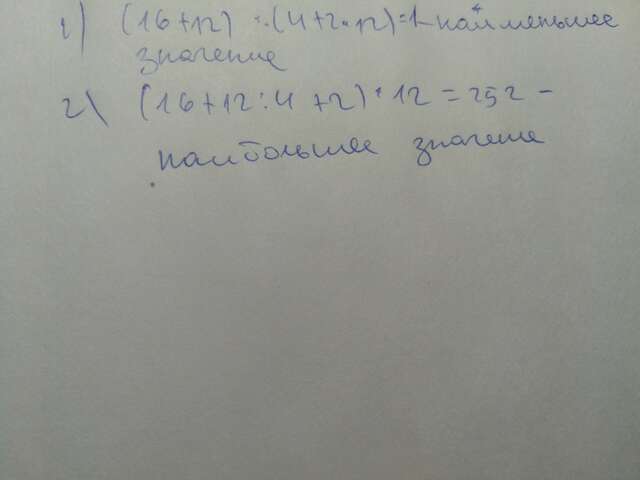 1) (16+12) : (4+2·12)=1 - найменьшее
значение
2) (16+12:4+2)·12=252 -
наибольшее значение